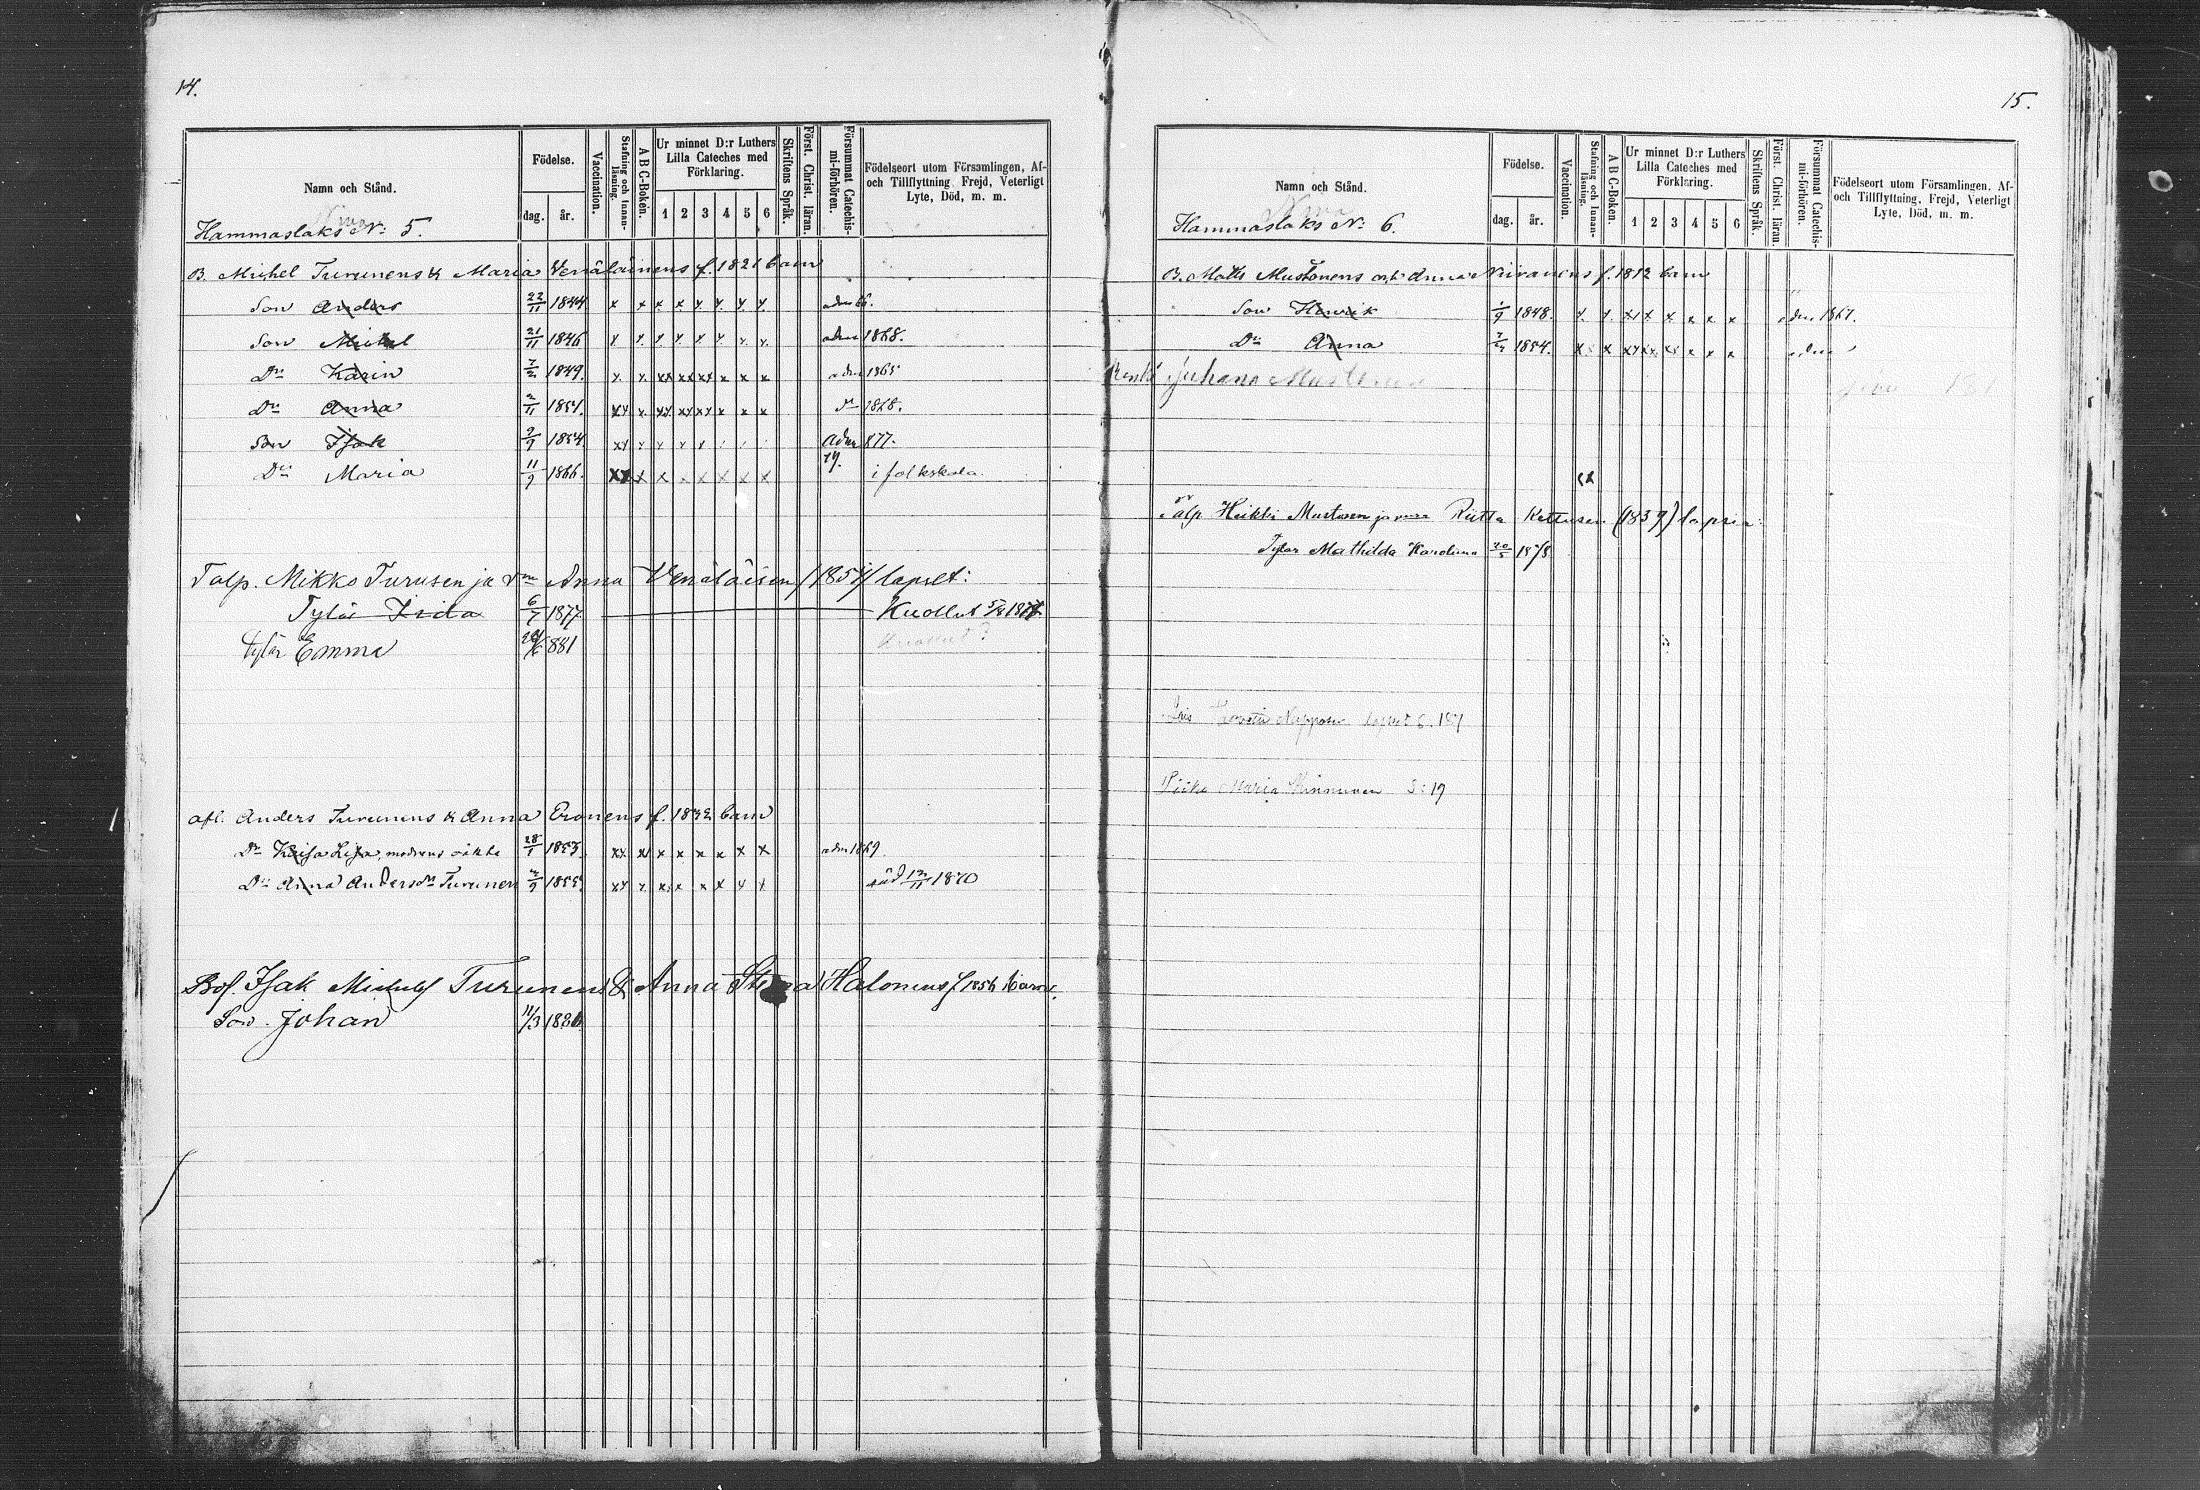 14.
Namn och Stånd.
Födelse.
dag. år.
Vaccination.
Stafning och Innanläsning.
A B C-Boken.
Ur minnet D:r Luthers Lilla Cateches med Förklaring.
1 2 3 4 5 6
Skriftens Språk.
Först. Christ. läran.
Försummat Catechismi-förhören.
Födelseort utom Församlingen, Af- och Tillflyttning, Frejd, Veterligt Lyte, Död, m. m.
Hammaslaks No 5.
B. Michel Turunens & Maria Venäläinens f. 1821 barn
Son Anders 22/11 1844 x x x x x x x x adm 66.
Son Mickel 21/11 1846 x x x x x x x x adm 1868.
Dr Karin 7/2 1849. x x xx xx xx x x x adm 1865
Dr Anna 2/11 1851. xx x xx xx xx x x x dr 1868.
Son Isak 9/9 1854 xx x x x x Adm 877.
Dr Maria 11/9 1866. xx x x x x x x 19. i folkskola
Talp. Mikko Turusen ja vmn Anna Venäläisen /1854/ lapset:
Tytär Irida 6/7 1877 Kuollut
Tytär Emma 881 Kuollut?
afl. Anders Turunens & Anna Eronens f. 1832 barn
Dr Kaisa Lisa, modrens oäkta 28/1 1853. xx x x x x x x x adm 1869.
Dr Anna Andersdr Turunen 2/9 1855 xx x x x x x x x död 12/11 1870
Bof. Isak Mickels Turunens & Anna Stina Halonens f 1856 barn.
Son. Johan 11/3 1886
15.
Namn och Stånd.
Födelse.
dag. år.
Vaccination.
Stafning och Innanläsning.
A B C-Boken.
Ur minnet D:r Luthers Lilla Cateches med Förklaring.
1 2 3 4 5 6
Skriftens Språk.
Först. Christ. läran.
Försummat Catechismi-förhören.
Födelseort utom Församlingen, Af- och Tillflyttning, Frejd, Veterligt Lyte, Död, m. m.
Hammaslaks No 6.
B. Matts Mustonens och Anna Niiranens f. 1812 barn
Son Henrik 1/9 1848. x. x. xx x x x x adm 1867.
Dr Anna 1854. x x xx xx xx x x x adm
Renki Juhana Mustonen
Talp Heikki Mustosen ja vmn Riitta Kettusen (1839) lapsia:
Tytär Mathilda Karolina 20/5 1878
Lois Nupposen lapset 6.
Piika Maria Kinnunen S: 19